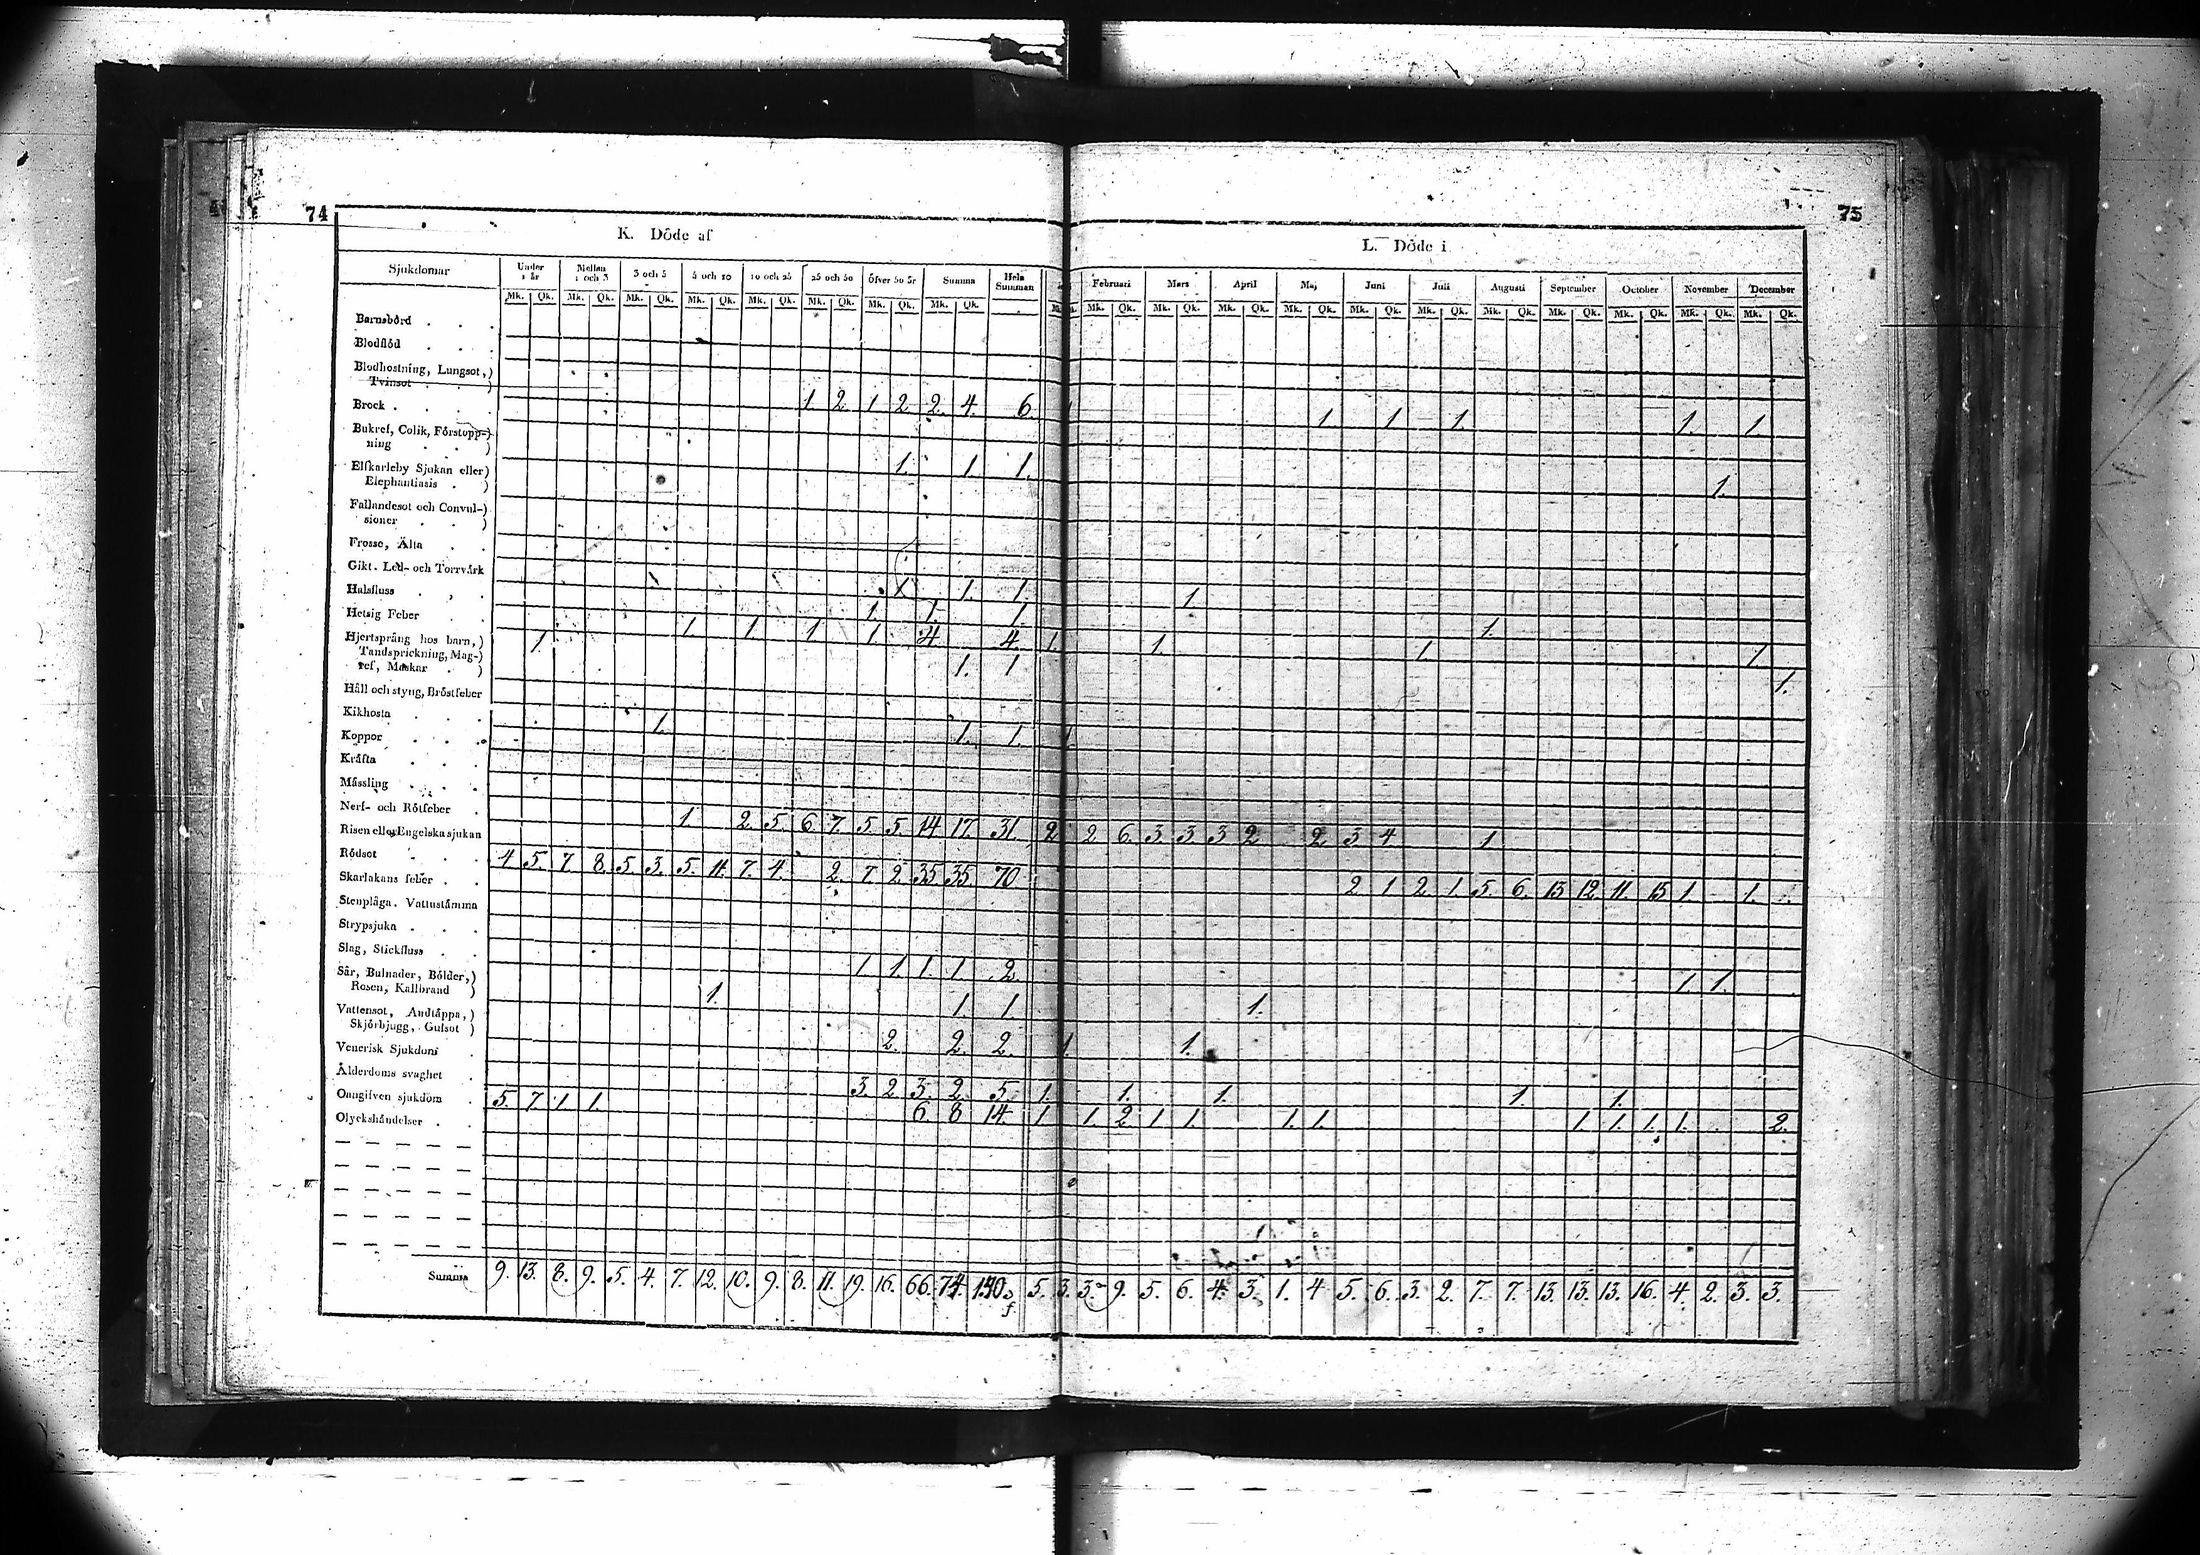 74
75
K. Döde af
L. Döde i
Sjukdomar
Under 1 år
Mellan 1 och 3
3 och 5
5 och 10
10 och 25
25 och 50
Öfver 50 år
Summa
Hela Summan
Februari
Mars
April
Maj
Juni
Juli
Augusti
September
October
November
December
Mk. Qk. Mk. Qk. Mk. Qk. Mk. Qk. Mk. Qk. Mk. Qk. Mk. Qk. Mk. Qk.
Mk. Qk. Mk. Qk. Mk. Qk. Mk. Qk. Mk. Qk. Mk. Qk. Mk. Qk. Mk. Qk. Mk. Qk. Mk. Qk. Mk. Qk.
Barnsbörd
Blodflöd
Blodhostning, Lungsot,)
Tvinsot )
1. 2. 1. 2. 2. 4. 6. 1. 1. 1. 1. 1.
Brock
Bukref, Colik, Förstopp-)
ning )
1. 1. 1. 1.
Elfkarleby Sjukan eller)
Elephantiasis )
Fallandesot och Convul-)
sioner )
Frosse, Älta
Gikt. Led- och Torrvärk
1. 1. 1.
Halsfluss
1. 1. 1. 1.
Hetsig Feber
1. 1. 1. 1. 4. 4. 1. 1. 1. 1.
Hjertsprång hos barn,)
Tandsprickning, Mag-)
ref, Maskar )
1. 1. 1. 1.
Håll och styng, Bröstfeber
Kikhosta
1. 1. 1. 1.
Koppor
Kräfta
Mässling
Nerf- och Rötfeber
1. 2. 5. 6. 7. 5. 5. 14 17. 31. 2. 2. 6. 3. 3. 3 2 2. 3 4 1
Risen eller Engelska sjukan
Rödsot
4. 5. 7. 8. 5. 3. 5. 11. 7. 4. 2. 7. 2. 35 35. 70 2 1 2. 1. 5. 6. 13 12. 11. 15 1. 1.
Skarlakans feber
Stenplåga. Vattustämma
Strypsjuka
Slag, Stickfluss
1. 1. 1. 1. 2. 1. 1.
Sår, Bulnader, Bölder,)
Rosen, Kallbrand )
1. 1. 1. 1.
Vattensot, Andtäppa,)
Skjörbjugg, Gulsot )
2. 2. 2. 1. 1.
Venerisk Sjukdom
Ålderdoms svaghet
3. 2 3. 2. 5. 1. 1. 1. 1. 1.
Oangifven sjukdom
5. 7. 1. 1. 6. 8 14. 1 1. 2. 1 1. 1. 1. 1. 1. 1. 1. 2.
Olyckshändelser
Summa
9. 13. 8. 9. 5. 4. 7. 12. 10. 9. 8. 11. 19. 16. 66. 74. 140. 5. 3. 3. 9. 5. 6. 4. 3. 1. 4 5. 6. 3. 2. 7. 7. 13. 13. 13. 16. 4. 2. 3. 3.